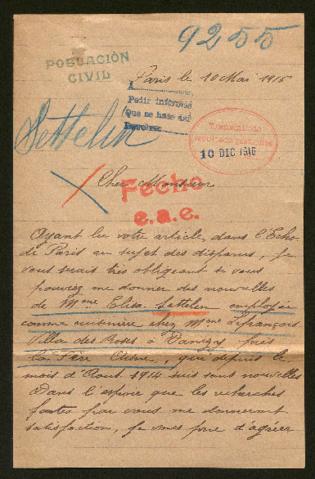 9255
POBLACIÓN
CIVIL
Paris le 10 Mai 1915
A
Pedir informes
Que se hace del
Settelen
10 DIC 1916
Cher Monsieur
Fecho
e.a.e.
Ayant lu votre article, dans l'Echo
de Paris au sujet des disparus, je
vous serais très obligeant si vous
pouviez me donner des nouvelles
de Mme Elisa Settelen employée
comme cuisinière chez Mme Lefrançois
Villa des Roses à Danizy près
La Fère Aisne, que depuis le
mois d'Aout 1914 suis sans nouvelles
Dans l'espoir que les recherches
faites par vous me donneront
satisfaction, je vous prie d'agréer